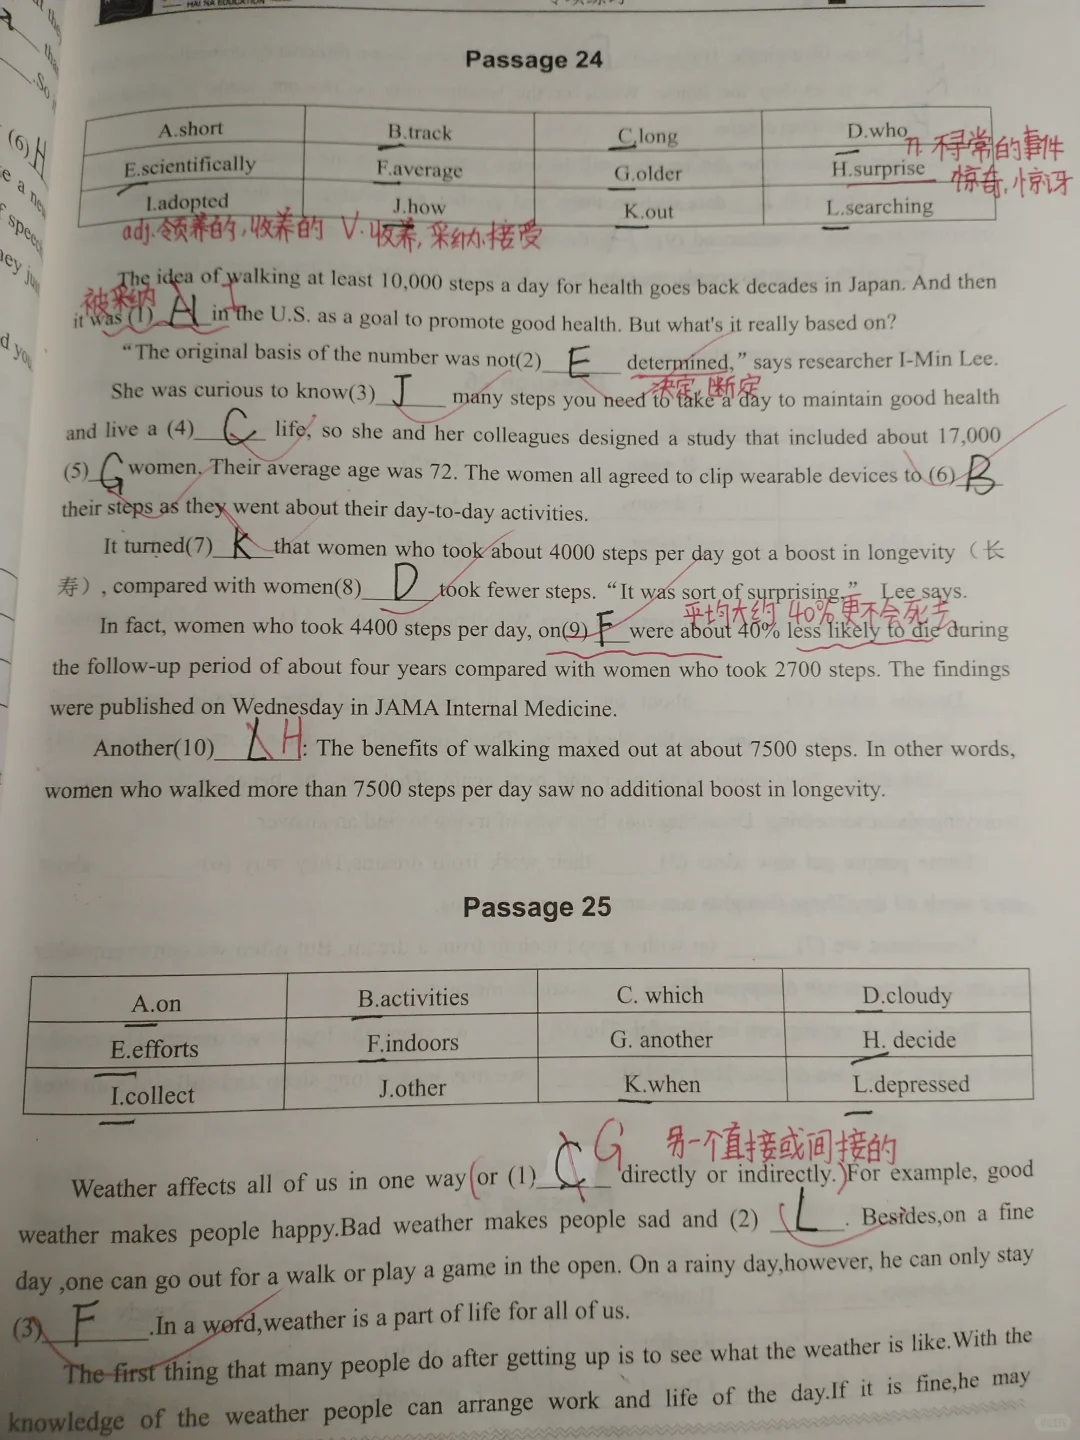 HAI NA EDUCATION
Passage 24
A.short B.track C.long D.who
n. 不寻常的事件
E.scientifically F.average G.older H.surprise
惊奇,惊讶
I.adopted J.how K.out L.searching
adj.领养的,收养的 V.收养,采纳,接受
The idea of walking at least 10,000 steps a day for health goes back decades in Japan. And then
被采纳
it was (1) H I in the U.S. as a goal to promote good health. But what's it really based on?
“The original basis of the number was not(2) E determined,” says researcher I-Min Lee.
决定,断定
She was curious to know(3) J many steps you need to take a day to maintain good health
and live a (4) C life, so she and her colleagues designed a study that included about 17,000
(5) G women. Their average age was 72. The women all agreed to clip wearable devices to (6) B
their steps as they went about their day-to-day activities.
It turned(7) K that women who took about 4000 steps per day got a boost in longevity（长
寿）, compared with women(8) D took fewer steps. “It was sort of surprising,” Lee says.
平均大约 40%更不会死去
In fact, women who took 4400 steps per day, on(9) F were about 40% less likely to die during
the follow-up period of about four years compared with women who took 2700 steps. The findings
were published on Wednesday in JAMA Internal Medicine.
Another(10) L H : The benefits of walking maxed out at about 7500 steps. In other words,
women who walked more than 7500 steps per day saw no additional boost in longevity.
Passage 25
A.on B.activities C. which D.cloudy
E.efforts F.indoors G. another H. decide
I.collect J.other K.when L.depressed
G 另一个直接或间接的
Weather affects all of us in one way (or (1) C directly or indirectly.) For example, good
weather makes people happy.Bad weather makes people sad and (2) L . Besides,on a fine
day ,one can go out for a walk or play a game in the open. On a rainy day,however, he can only stay
(3) F .In a word,weather is a part of life for all of us.
The first thing that many people do after getting up is to see what the weather is like.With the
knowledge of the weather people can arrange work and life of the day.If it is fine,he may